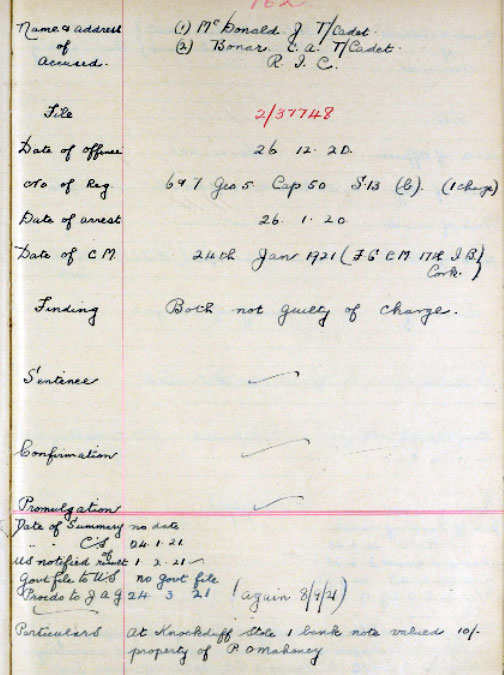 162
Name & address (1) McDonald. J T/Cadet.
of (2) Bonar. C. A. T/Cadet.
Accused. R. I. C.
File 2/37748
Date of offence 26 12. 20.
No of Reg. 6 & 7 Geo 5 Cap 50 S.13 (b). (1 charge)
Date of arrest 26. 1. 20
Date of C.M. 24th Jan 1921 (F G C M 17th I.B.
Cork.)
Finding Both not guilty of charge.
Sentence
Confirmation
Promulgation
Date of Summary no date
" " C's of 24.1.21.
US notified result 1. 2. 21
Govt file to US no Govt file
Proeds to J A G 24 3 21 (again 8/7/21)
Particulars At Knockduff Stole 1 bank note valued 10/-
property of P O Mahoney